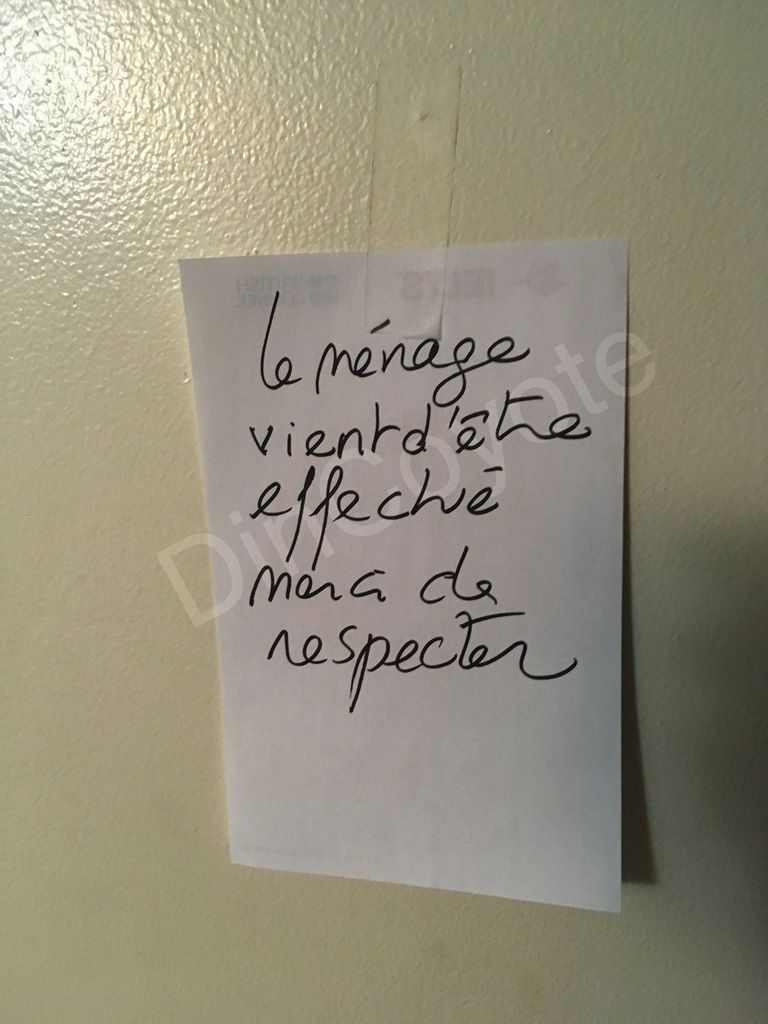 BRITISH IELTS
COUNCIL
le ménage
vient d'être
effectué
merci de
respecter
DinCoyote